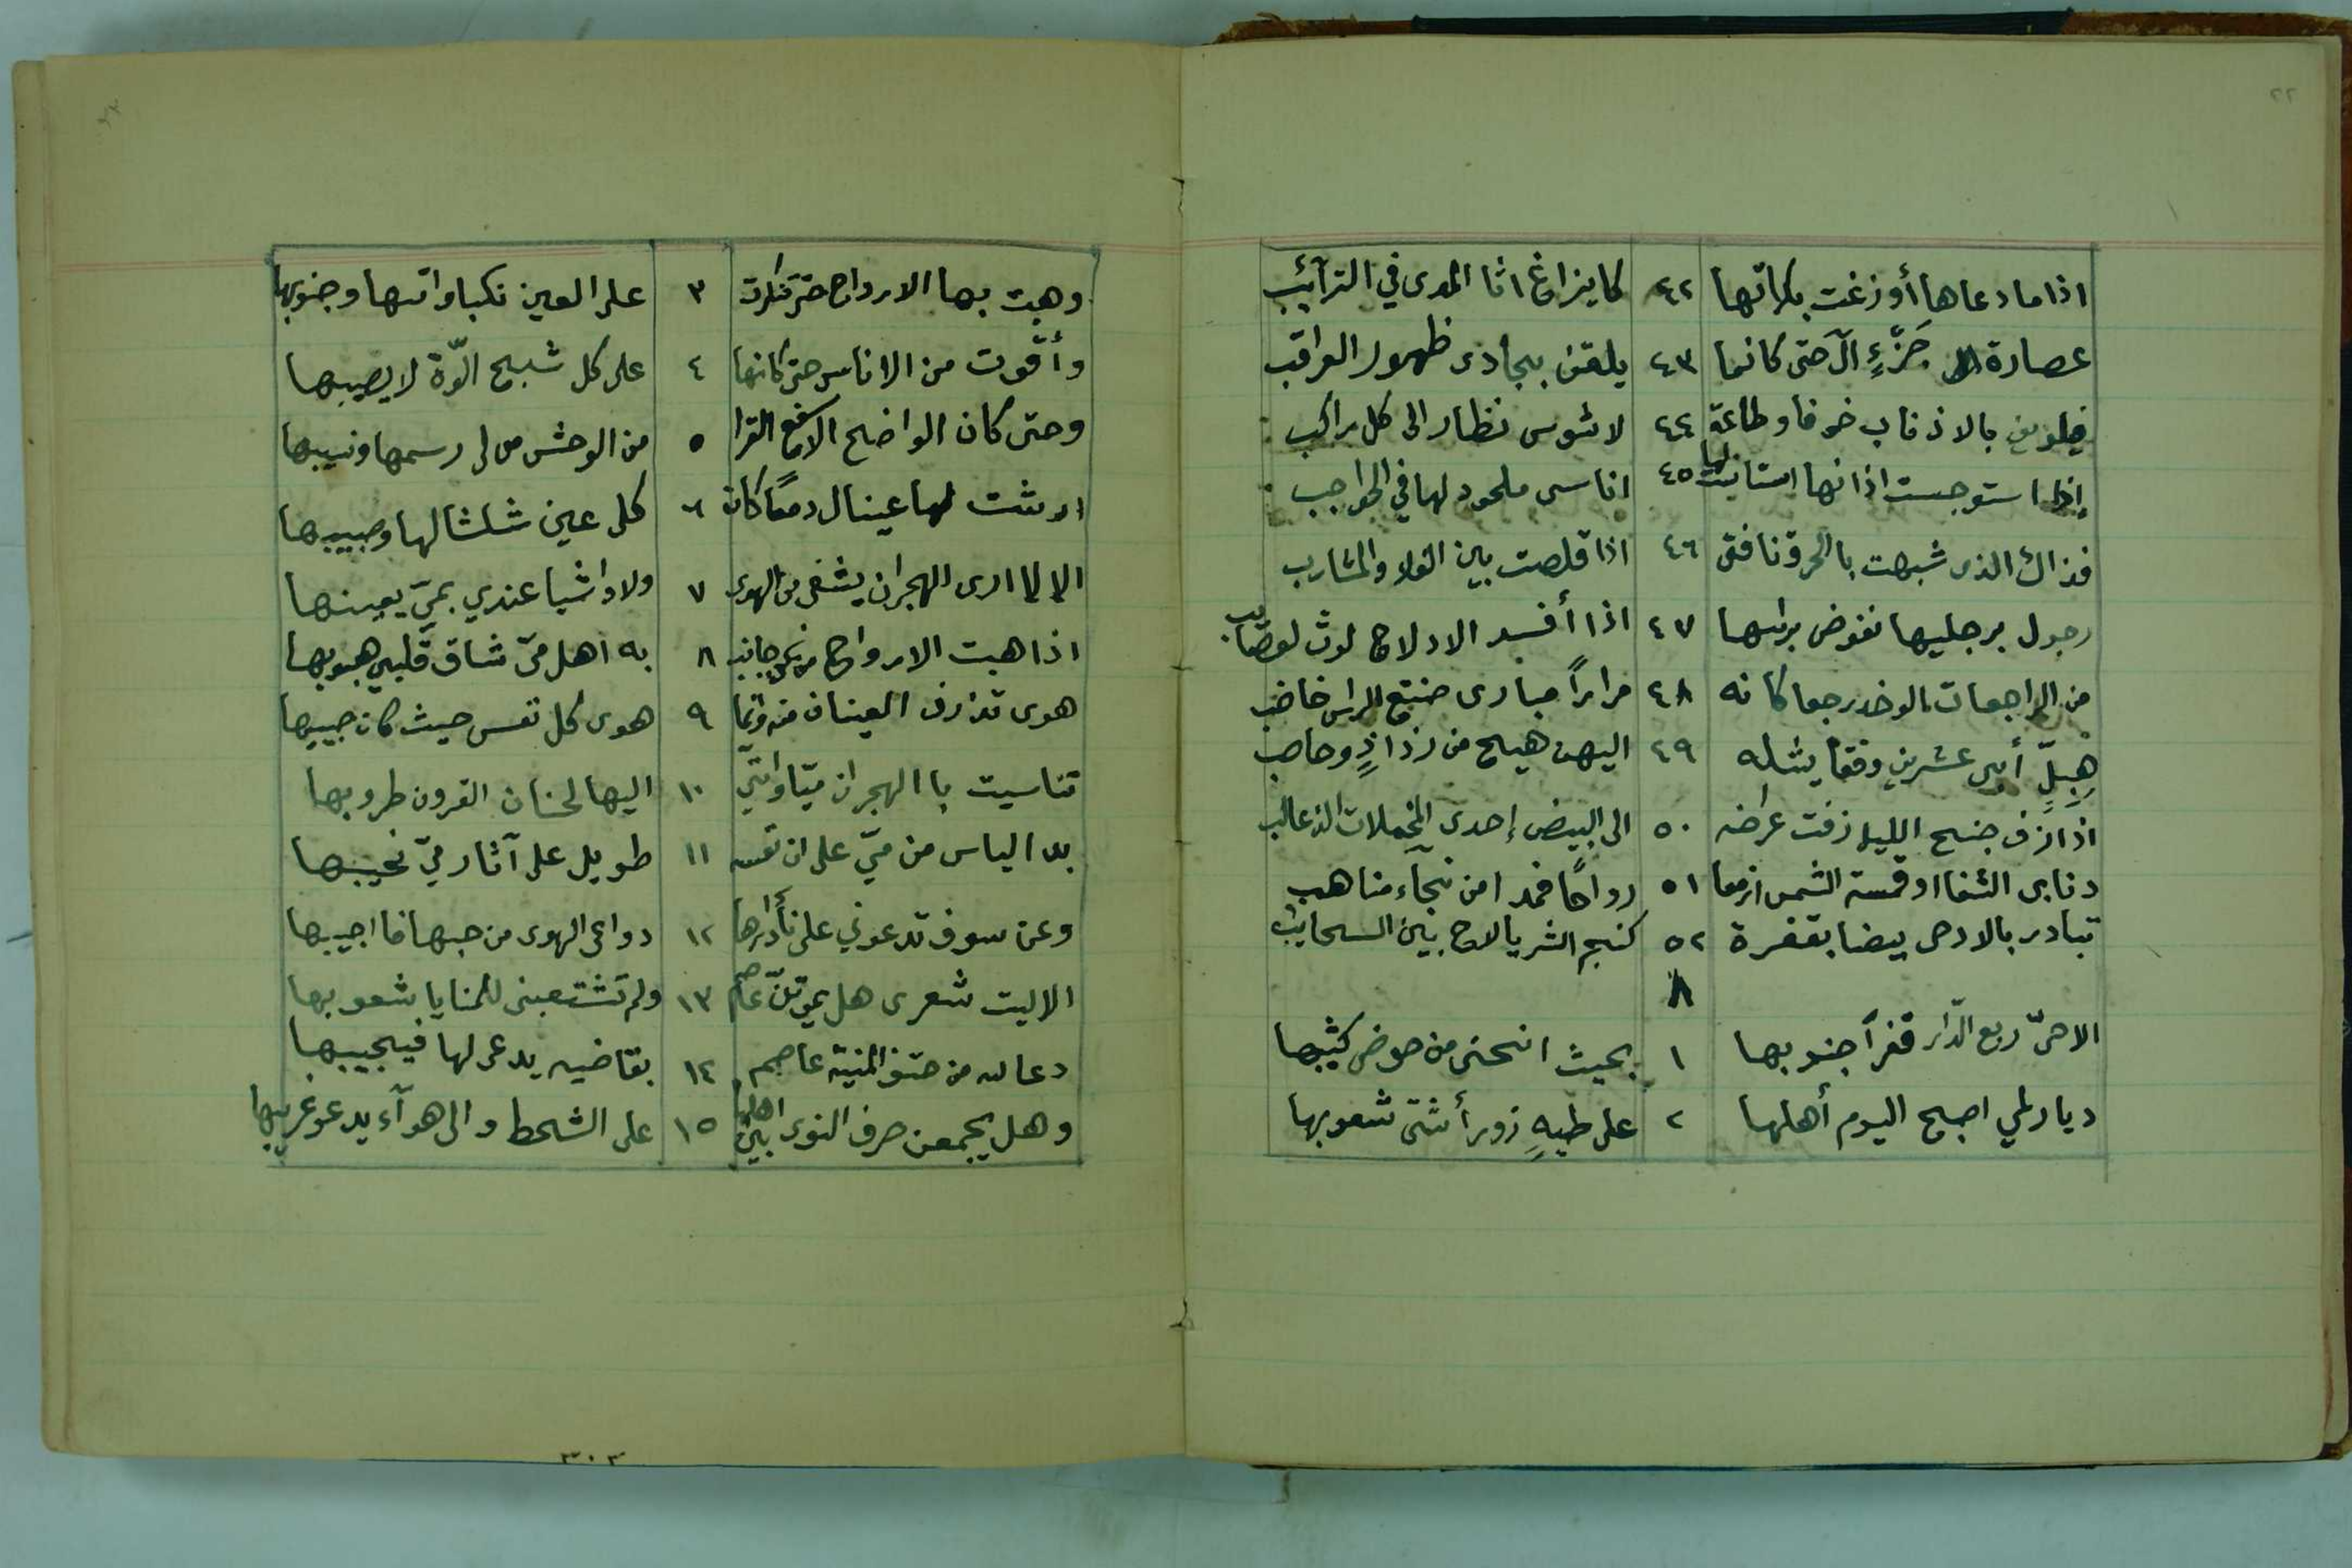 ٢٢
اذا ما دعاها أوزغت بكراتها ٤٢ كايزاغ اثا المدى في الترآئب
عصارة جَزْءٍ آل حتى كانما ٤٣ يلقن بجادى ظهور العراقب
فيلوين بالاذناب خوفا وطاعة ٤٤ لاشوس نظار الى كل راكب
إذا استوجست اذانها استانست لها ٤٥ اناسى ملحود لها في الحواجب
فذاك الذى شبهت بالخرق ناقتى ٤٦ اذا قلصت بين الفلا والمشارب
رجول برجليها نغوض براسها ٤٧ اذا أفسد الادلاج لوث لعصايب
من الراجعات الوخد رجعا كانه ٤٨ مرارًا مبارى صنتع الراس خاضب
هِبِلٍّ أبى عشرين وفقا يشله ٤٩ اليهن هيج من رذاذٍ وحاصب
اذا زف جنح الليل زفت عراضه ٥٠ الى البيض إحدى المخملات الذعالب
ذنابى الشفا او قمسة الشمس ازمعا ٥١ رواحًا فمدا من نجاء مناهب
تبادر بالادحى بيضا بقفرة ٥٢ كنجم الثريا لاح بين السحايب
٨
الا حىّ ربع الدّار قفرآ جنوبها ١ بحيث انحنى من حوضى كثيبها
ديار لمي اصبح اليوم أهلها ٢ على طيهِ زورأ شتى شعوبها
وهبت بها الارواح حتى تنكرت ٣ على العين نكباواتها وجنوبها
وأقوت من الاناس حتى كانها ٤ على كل شبح الوّة لا يصيبها
وحتى كان الواضح الاسفع القرا ٥ من الوحش مولى رسمها ونسيبها
ارشت لها عينال دمعًا كانه ٦ كلى عين شلشالها وصبيبها
الا لا ارى الهجران يشفى من الهوى ٧ ولا واشيا عندي بميّ يعيبها
اذا هبت الارواح من نحو جانب ٨ به اهل مىّ شاق قلبي هبوبها
هوى تذارف العينان منه وانما ٩ هوى كل نفس حيث كان حبيبها
تناسيت با الهجران ميّا وانّني ١٠ اليها لحنان القرون طروبها
بدا الياس من ميّ على ان نفسه ١١ طويل على آثار ميّ نحيبها
وعن سوف تدعوني على نأي دارها ١٢ دواعى الهوى من حبها فا اجيبها
الا ليت شعرى هل يموتنّ عاصم ١٣ ولم تشتعبنى للمنايا شعوبها
دعا له من حتف المنية عاصم ١٤ بقاضيه يدعى لها فيجيبها
وهل يجمعن صرف النوى بين اهلها ١٥ على الشحط والى هوآء يدعو غريبها
٣٠٣